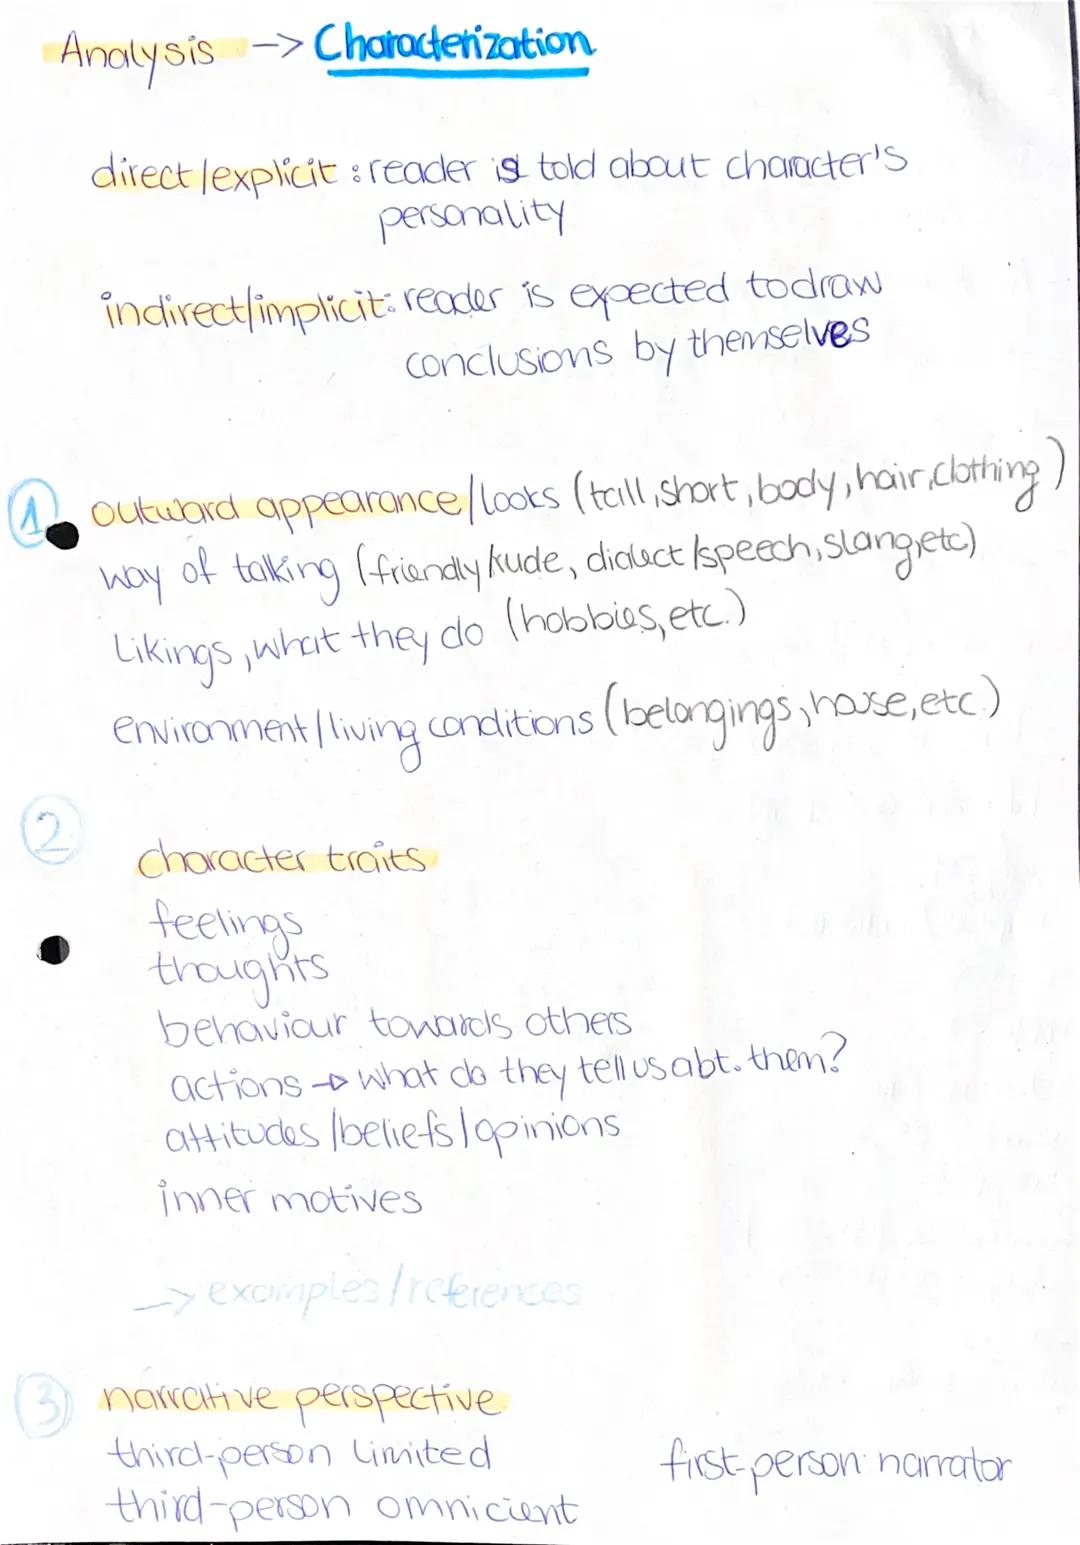 Analysis -> Characterization
direct/explicit: reader is told about character's
personality
indirect/implicit: reader is expected to draw
conclusions by themselves
1. outward appearance/looks (tall, short, body, hair, clothing)
way of talking (friendly/rude, dialect/speech, slang, etc.)
Likings, what they do (hobbies, etc.)
environment/living conditions (belongings, house, etc.)
2
character traits
feelings
thoughts
behaviour towards others
actions -> what do they tell us abt. them?
attitudes/beliefs/opinions
inner motives
-> examples/references
3 narrative perspective
third-person limited first-person narrator
third-person omnicient